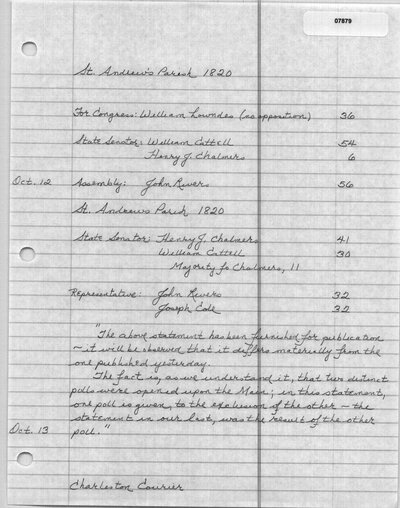 07879
St. Andrew's Parish 1820
For Congress: William Lowndes (no opposition) 36
State Senator: William Cattell 54
Henry J. Chalmers 6
Oct. 12 Assembly: John Rivers 56
St. Andrews Parish 1820
State Senator: Henry J. Chalmers 41
William Cattell 30
Majority fo Chalmers, 11
Representative: John Rivers 32
Joseph Cole 32
"The above statement has been furnished for publication
- it will be observed that it differs materially from the
one published yesterday.
The fact is, as we understand it, that two distinct
polls were opened upon the Main; in this statement,
one poll is given, to the exclusion of the other - the
statement in our last, was the result of the other
Oct. 13 poll."
Charleston Courier